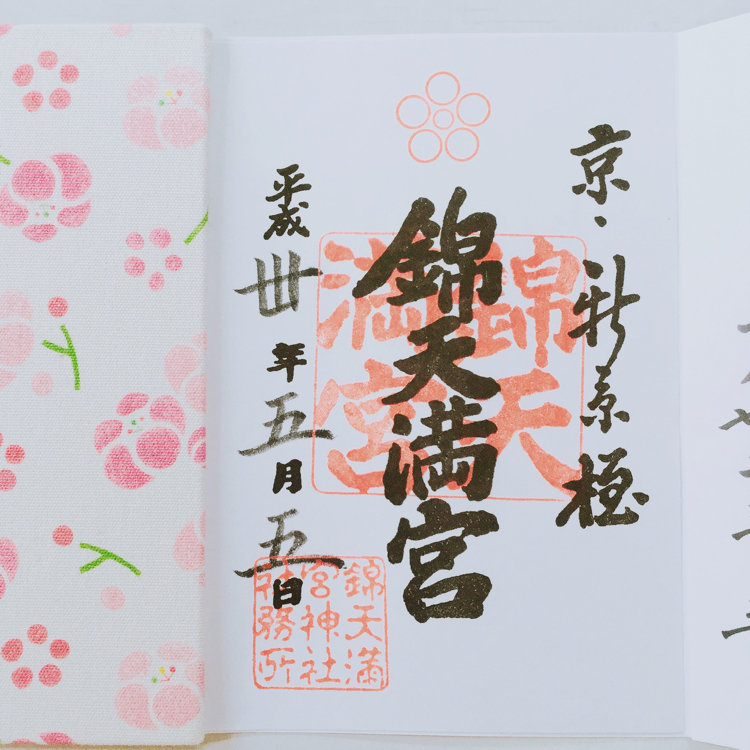 京・新京極
錦天満宮
錦天
満宮
平成卅年五月五日
錦天満
宮神社
社務所